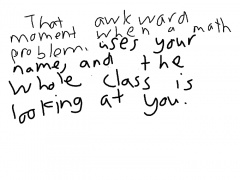 That awkward
moment when a math
problem uses your
name, and the
whole class is
looking at you.